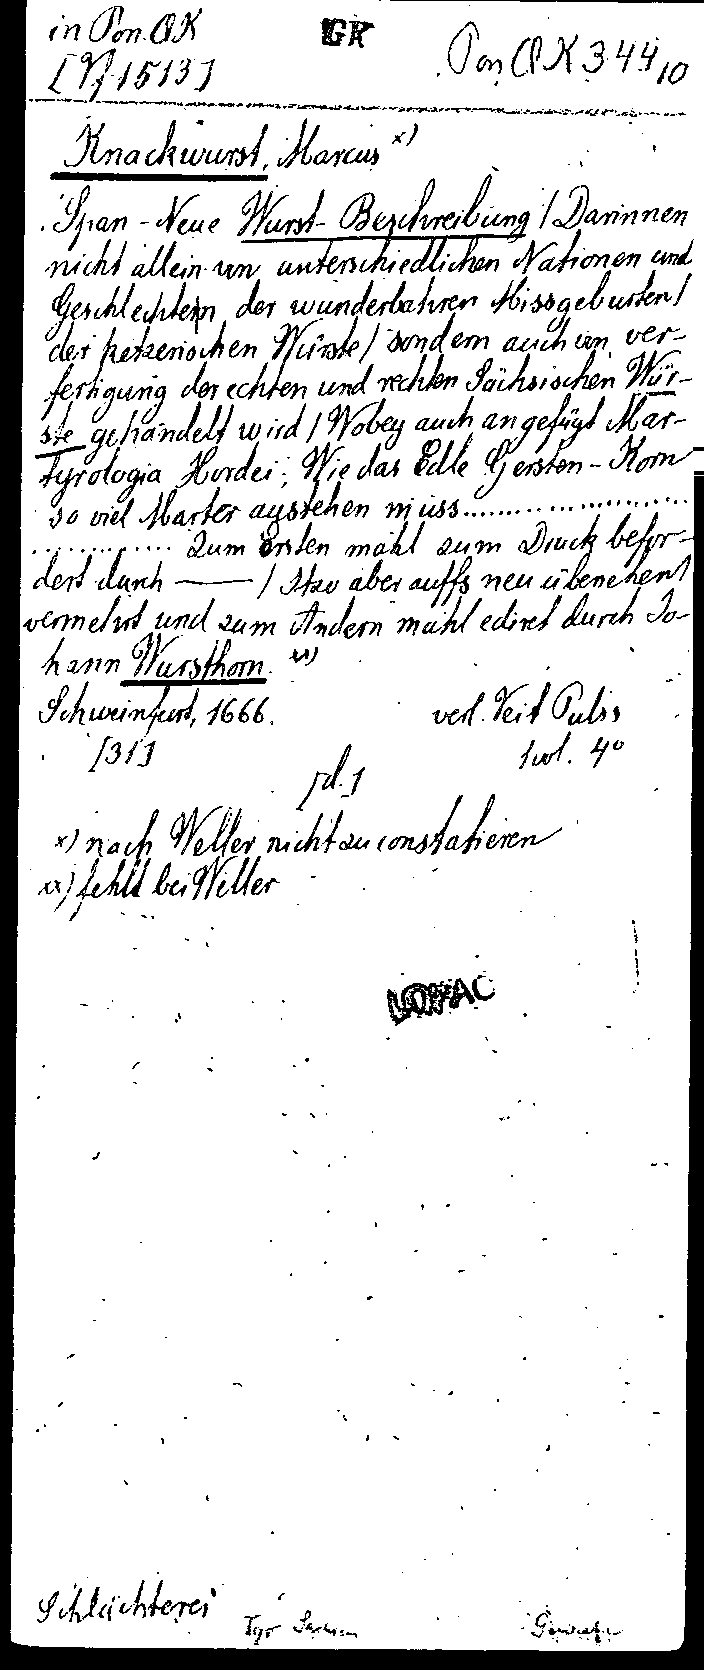 in Pon. QK
GK
[Vf 1513]
Pon QK 344,10
Knackwurst, Marcus x)
Span-Neue Wurst-Beschreibung / Darinnen
nicht allein von unterschiedlichen Nationen und
Geschlechtern der wunderbahren Missgeburten /
der ketzerischen Würste / sondern auch von ver-
fertigung der echten und rechten Sächsischen Wür-
ste gehandelt wird / Wobey auch angefügt Mar-
tyrologia Hordei, Wie das Edle Gersten-Korn
so viel Marter ausstehen muss..........
.......... Zum Ersten mahl zum Druck befor-
dert durch —— / Itzo aber auffs neu übersehen /
vermehrt und zum Andern mahl ediret durch Jo-
hann Wursthorn. xx)
Schweinfurt, 1666. verl. Veit Pulss
[31] 1 vol. 4°
[d.]
x) nach Weller nicht zu constatieren
xx) fehlt bei Weller
LOPPAC
Schlächterei
Sachsen